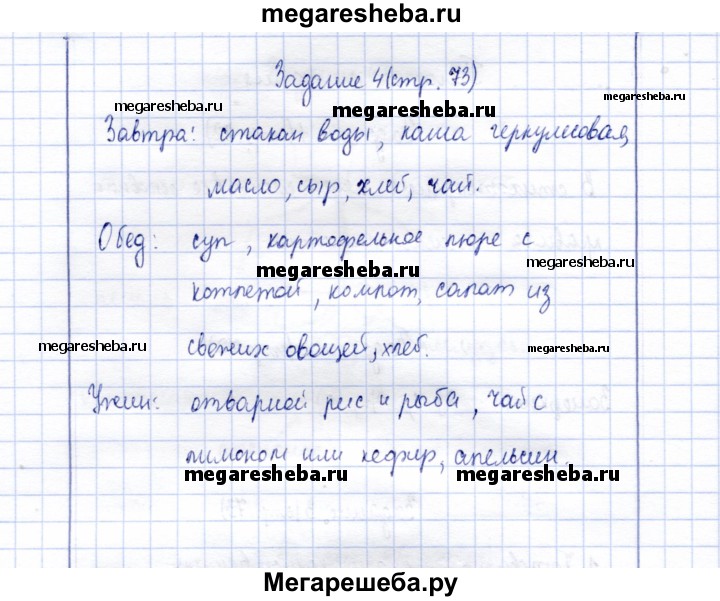 megaresheba.ru
Задание 4(стр. 73)
megaresheba.ru
megaresheba.ru
Завтра: стакан воды, каша геркулесовая,
масло, сыр, хлеб, чай.
Обед: суп, картофельное пюре с
megaresheba.ru
megaresheba.ru
котлетой, компот, салат из
megaresheba.ru
свежих овощей, хлеб.
megaresheba.ru
Ужин: отварной рис и рыба, чай с
лимоном или кефир, апельсин.
megaresheba.ru
megaresheba.ru
Мегарешеба.ру